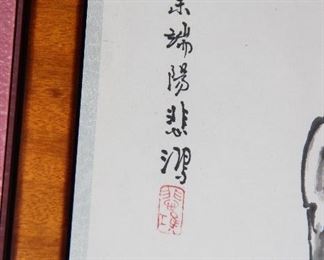 端陽悲鴻